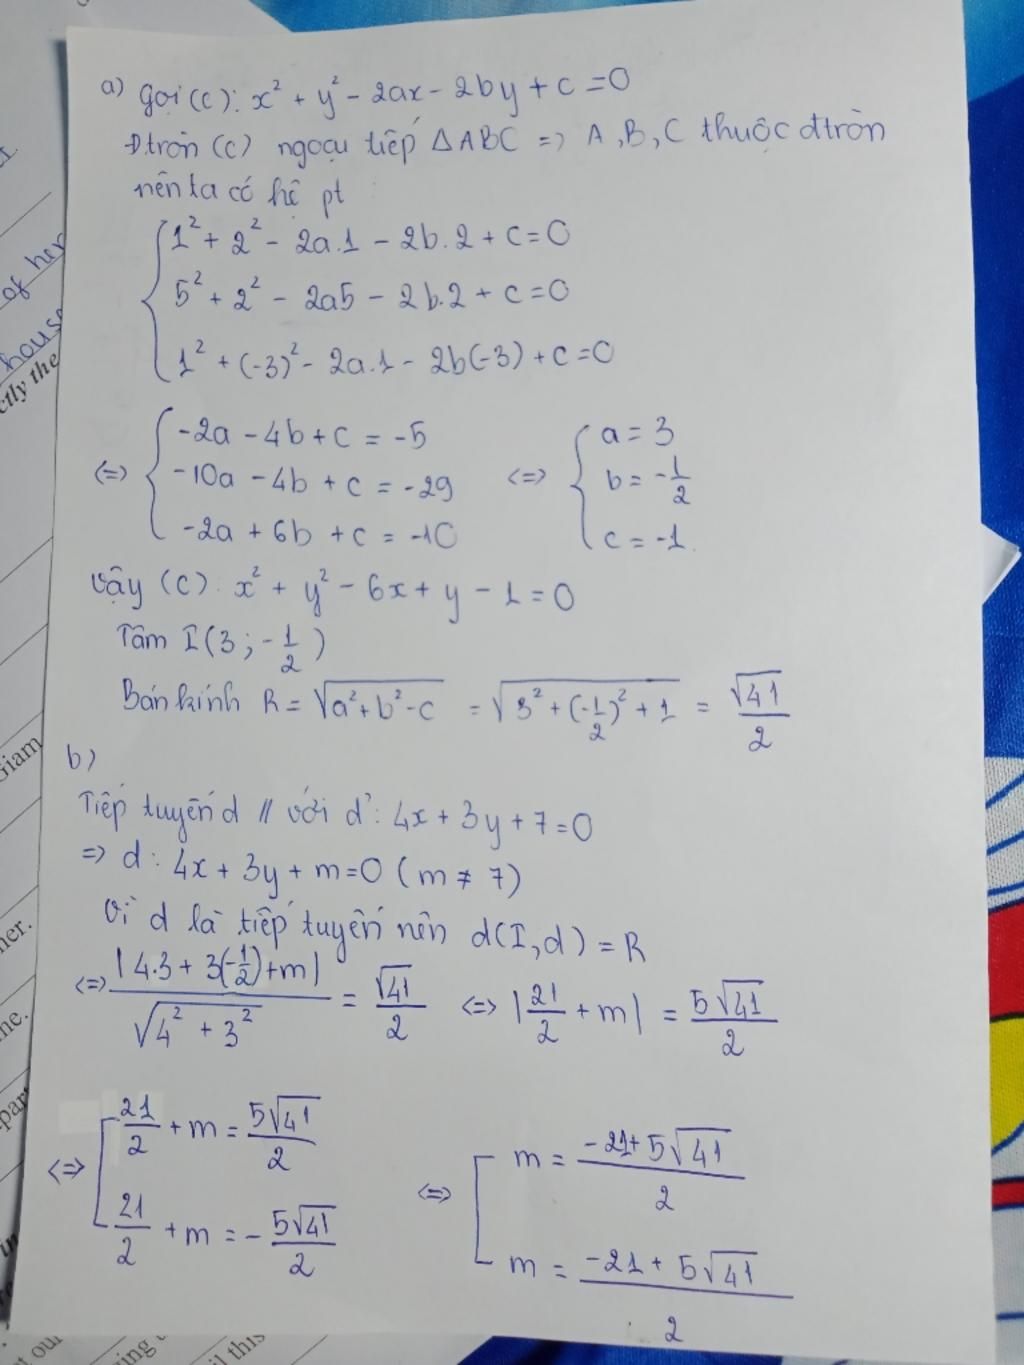 a) gọi (C): x² + y² - 2ax - 2by + c = 0
Đtròn (C) ngoại tiếp ΔABC => A, B, C thuộc đtròn
nên ta có hệ pt
1² + 2² - 2a.1 - 2b.2 + c = 0
5² + 2² - 2a5 - 2b.2 + c = 0
1² + (-3)² - 2a.1 - 2b(-3) + c = 0
<=> { -2a - 4b + c = -5
-10a - 4b + c = -29
-2a + 6b + c = -10
<=> { a = 3
b = -1/2
c = -1.
Vậy (C): x² + y² - 6x + y - 1 = 0
Tâm I(3; -1/2)
Bán kính R = √(a² + b² - c) = √(3² + (-1/2)² + 1) = √41/2
b)
Tiếp tuyến d // với d': 4x + 3y + 7 = 0
=> d: 4x + 3y + m = 0 (m ≠ 7)
Vì d là tiếp tuyến nên d(I,d) = R
<=> |4.3 + 3(-1/2) + m| / √(4² + 3²) = √41/2 <=> |21/2 + m| = 5√41/2
<=> [ 21/2 + m = 5√41/2
21/2 + m = -5√41/2
<=> [ m = (-21 + 5√41)/2
m = (-21 + 5√41)/2
of her
house
ctly the
Giam
her.
me.